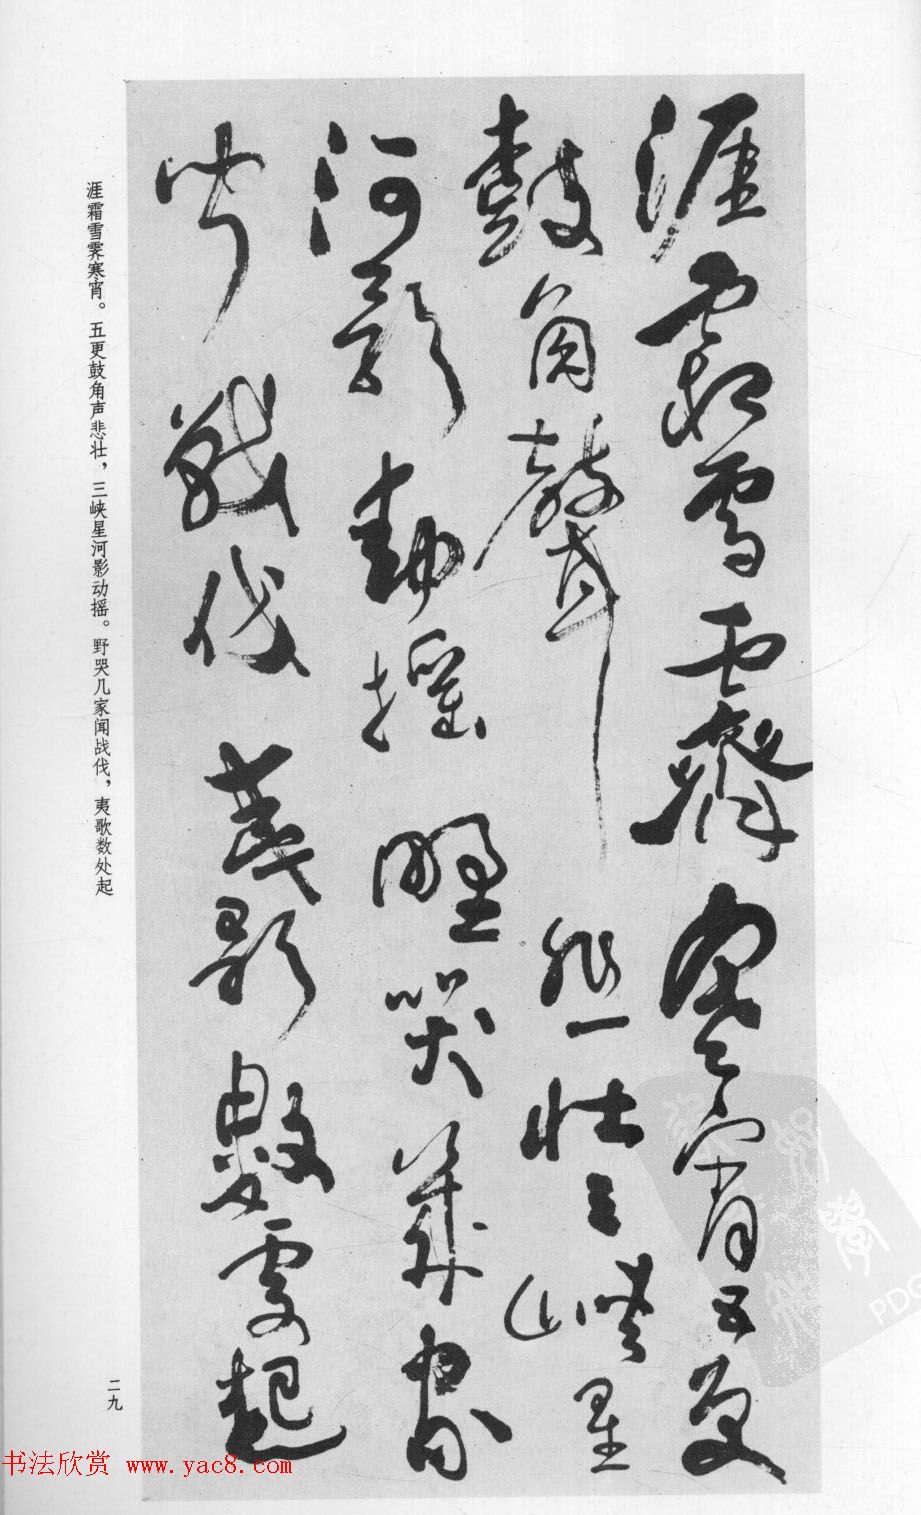 涯霜雪霽寒宵五更
鼓角聲悲壯三峽星
河影動搖野哭幾家
聞戰伐夷歌數處起
涯霜雪霁寒宵。五更鼓角声悲壮，三峡星河影动摇。野哭几家闻战伐，夷歌数处起
二九
书法欣赏 www.yac8.com